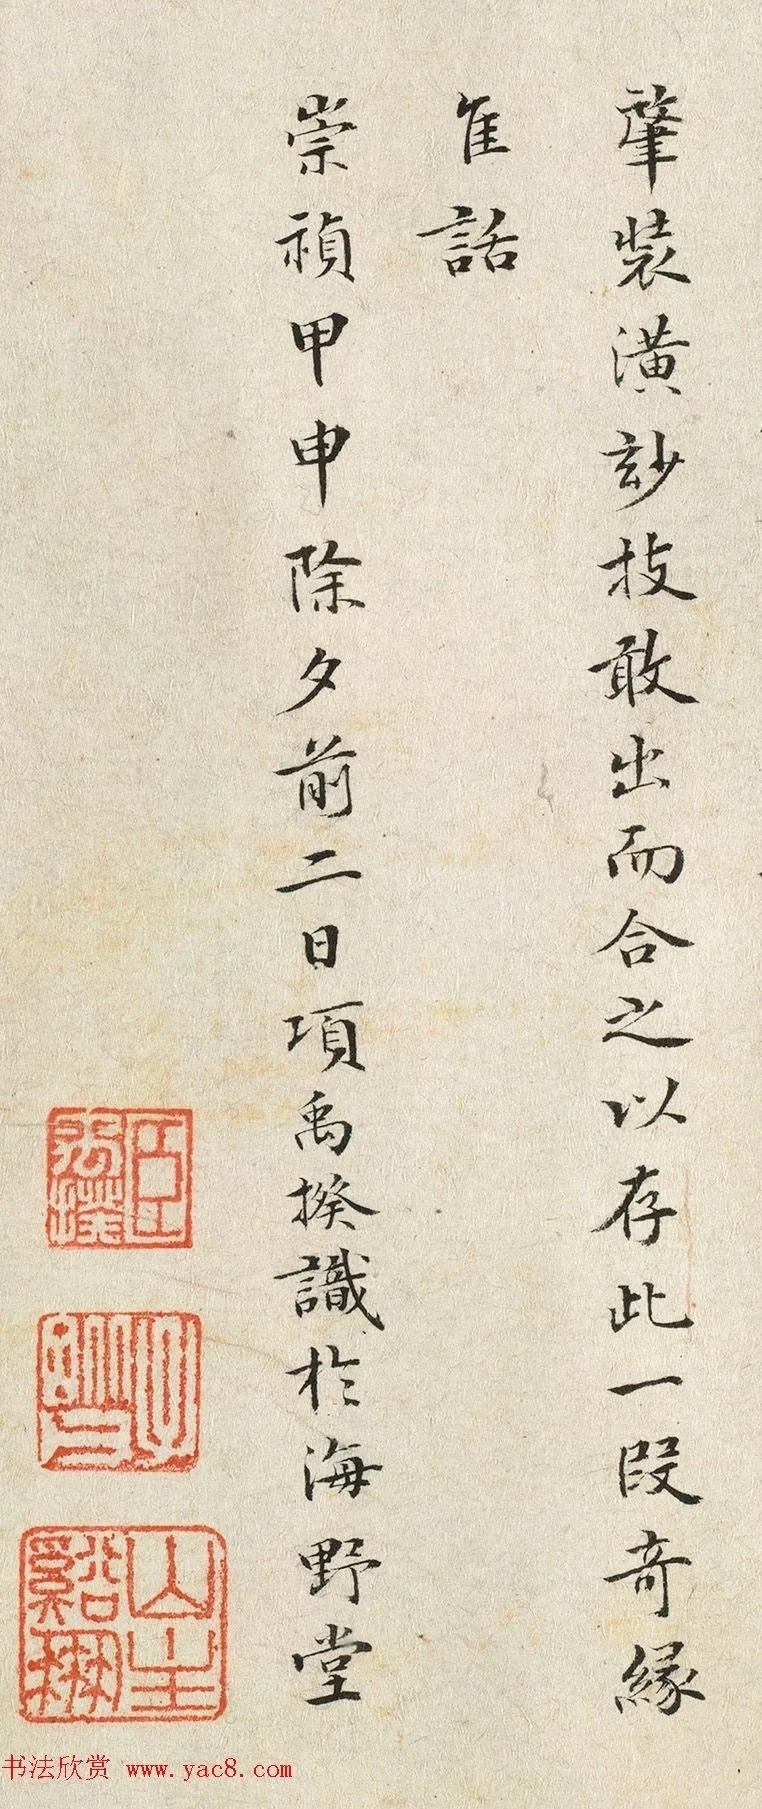 肇裝潢玅技敢出而合之以存此一段奇緣
隹話
崇禎甲申除夕前二日項禹揆識於海野堂
书法欣赏 www.yac8.com